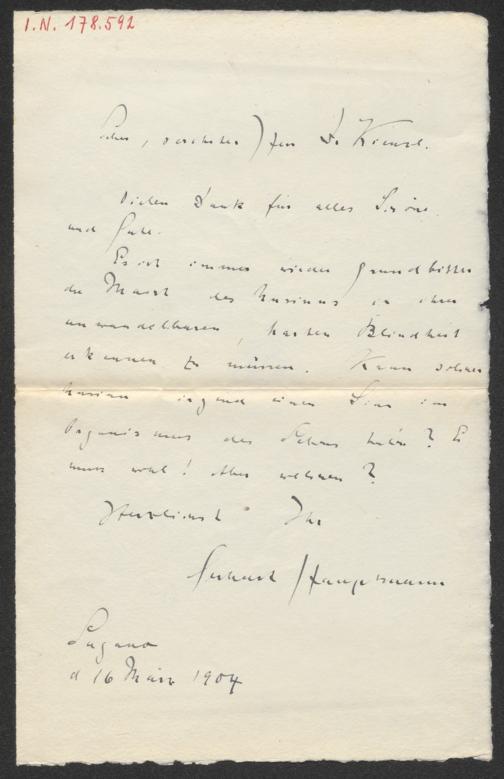 I.N. 178.592
Lieber, verehrter Herr Dr Kienzl.
Vielen Dank für alles Schöne
und Gute.
Es ist immer wieder grundbitter
die Macht des Unsinns in ihrer
unwandelbaren, harten Blindheit
erkennen zu müssen. Kann solcher
Unsinn irgend einen Sinn im
Organismus des Lebens haben? Es
muss wohl! Aber welchen?
Herzlichst Ihr
Gerhart Hauptmann
Lugano
d 16 März 1904